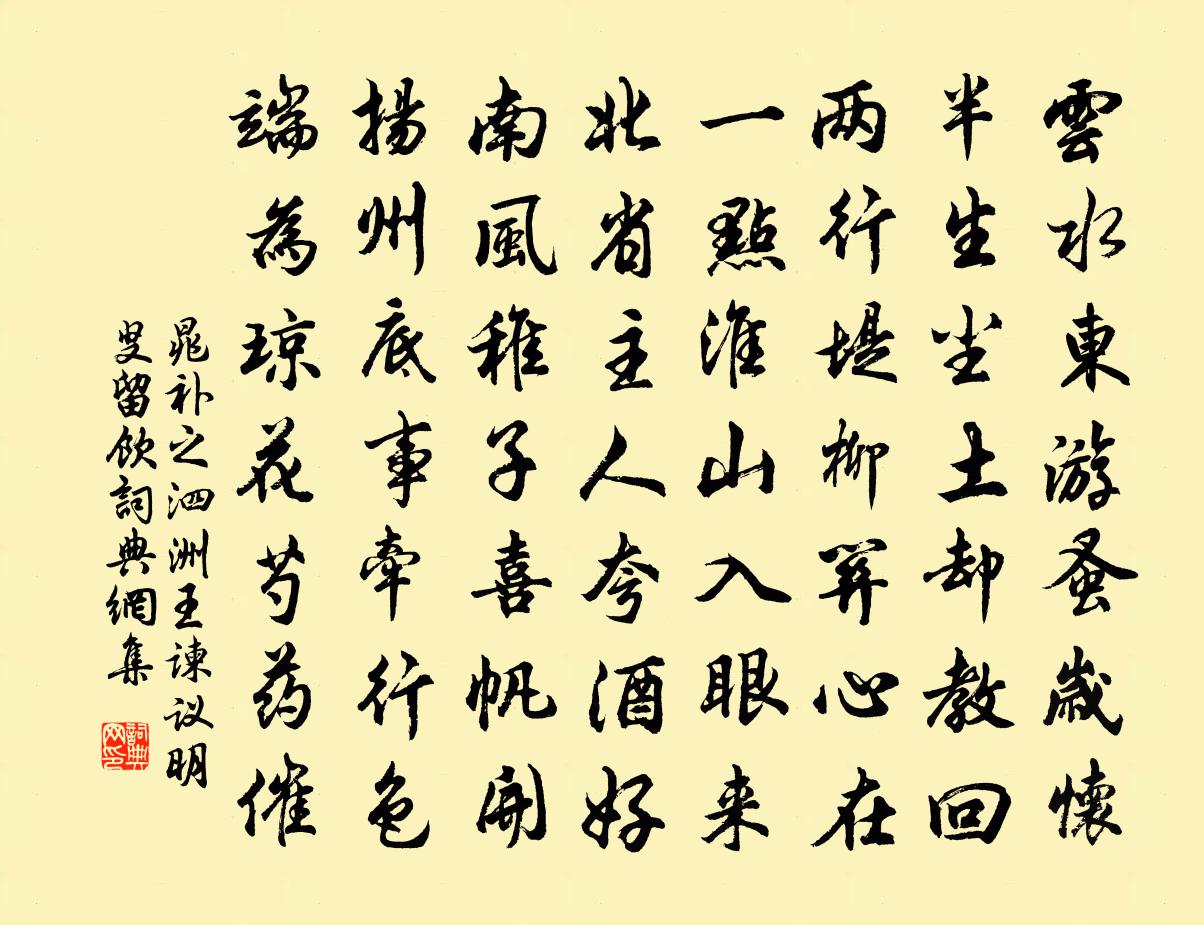 雲水東游蚤歲懷
半生尘土却教回
两行堤柳關心在
一點淮山入眼来
北省主人夸酒好
南風稚子喜帆開
揚州底事牽行色
端為琼花芍药催
晁补之泗洲王諫议明
叟留飲詞典網集
詞典网印